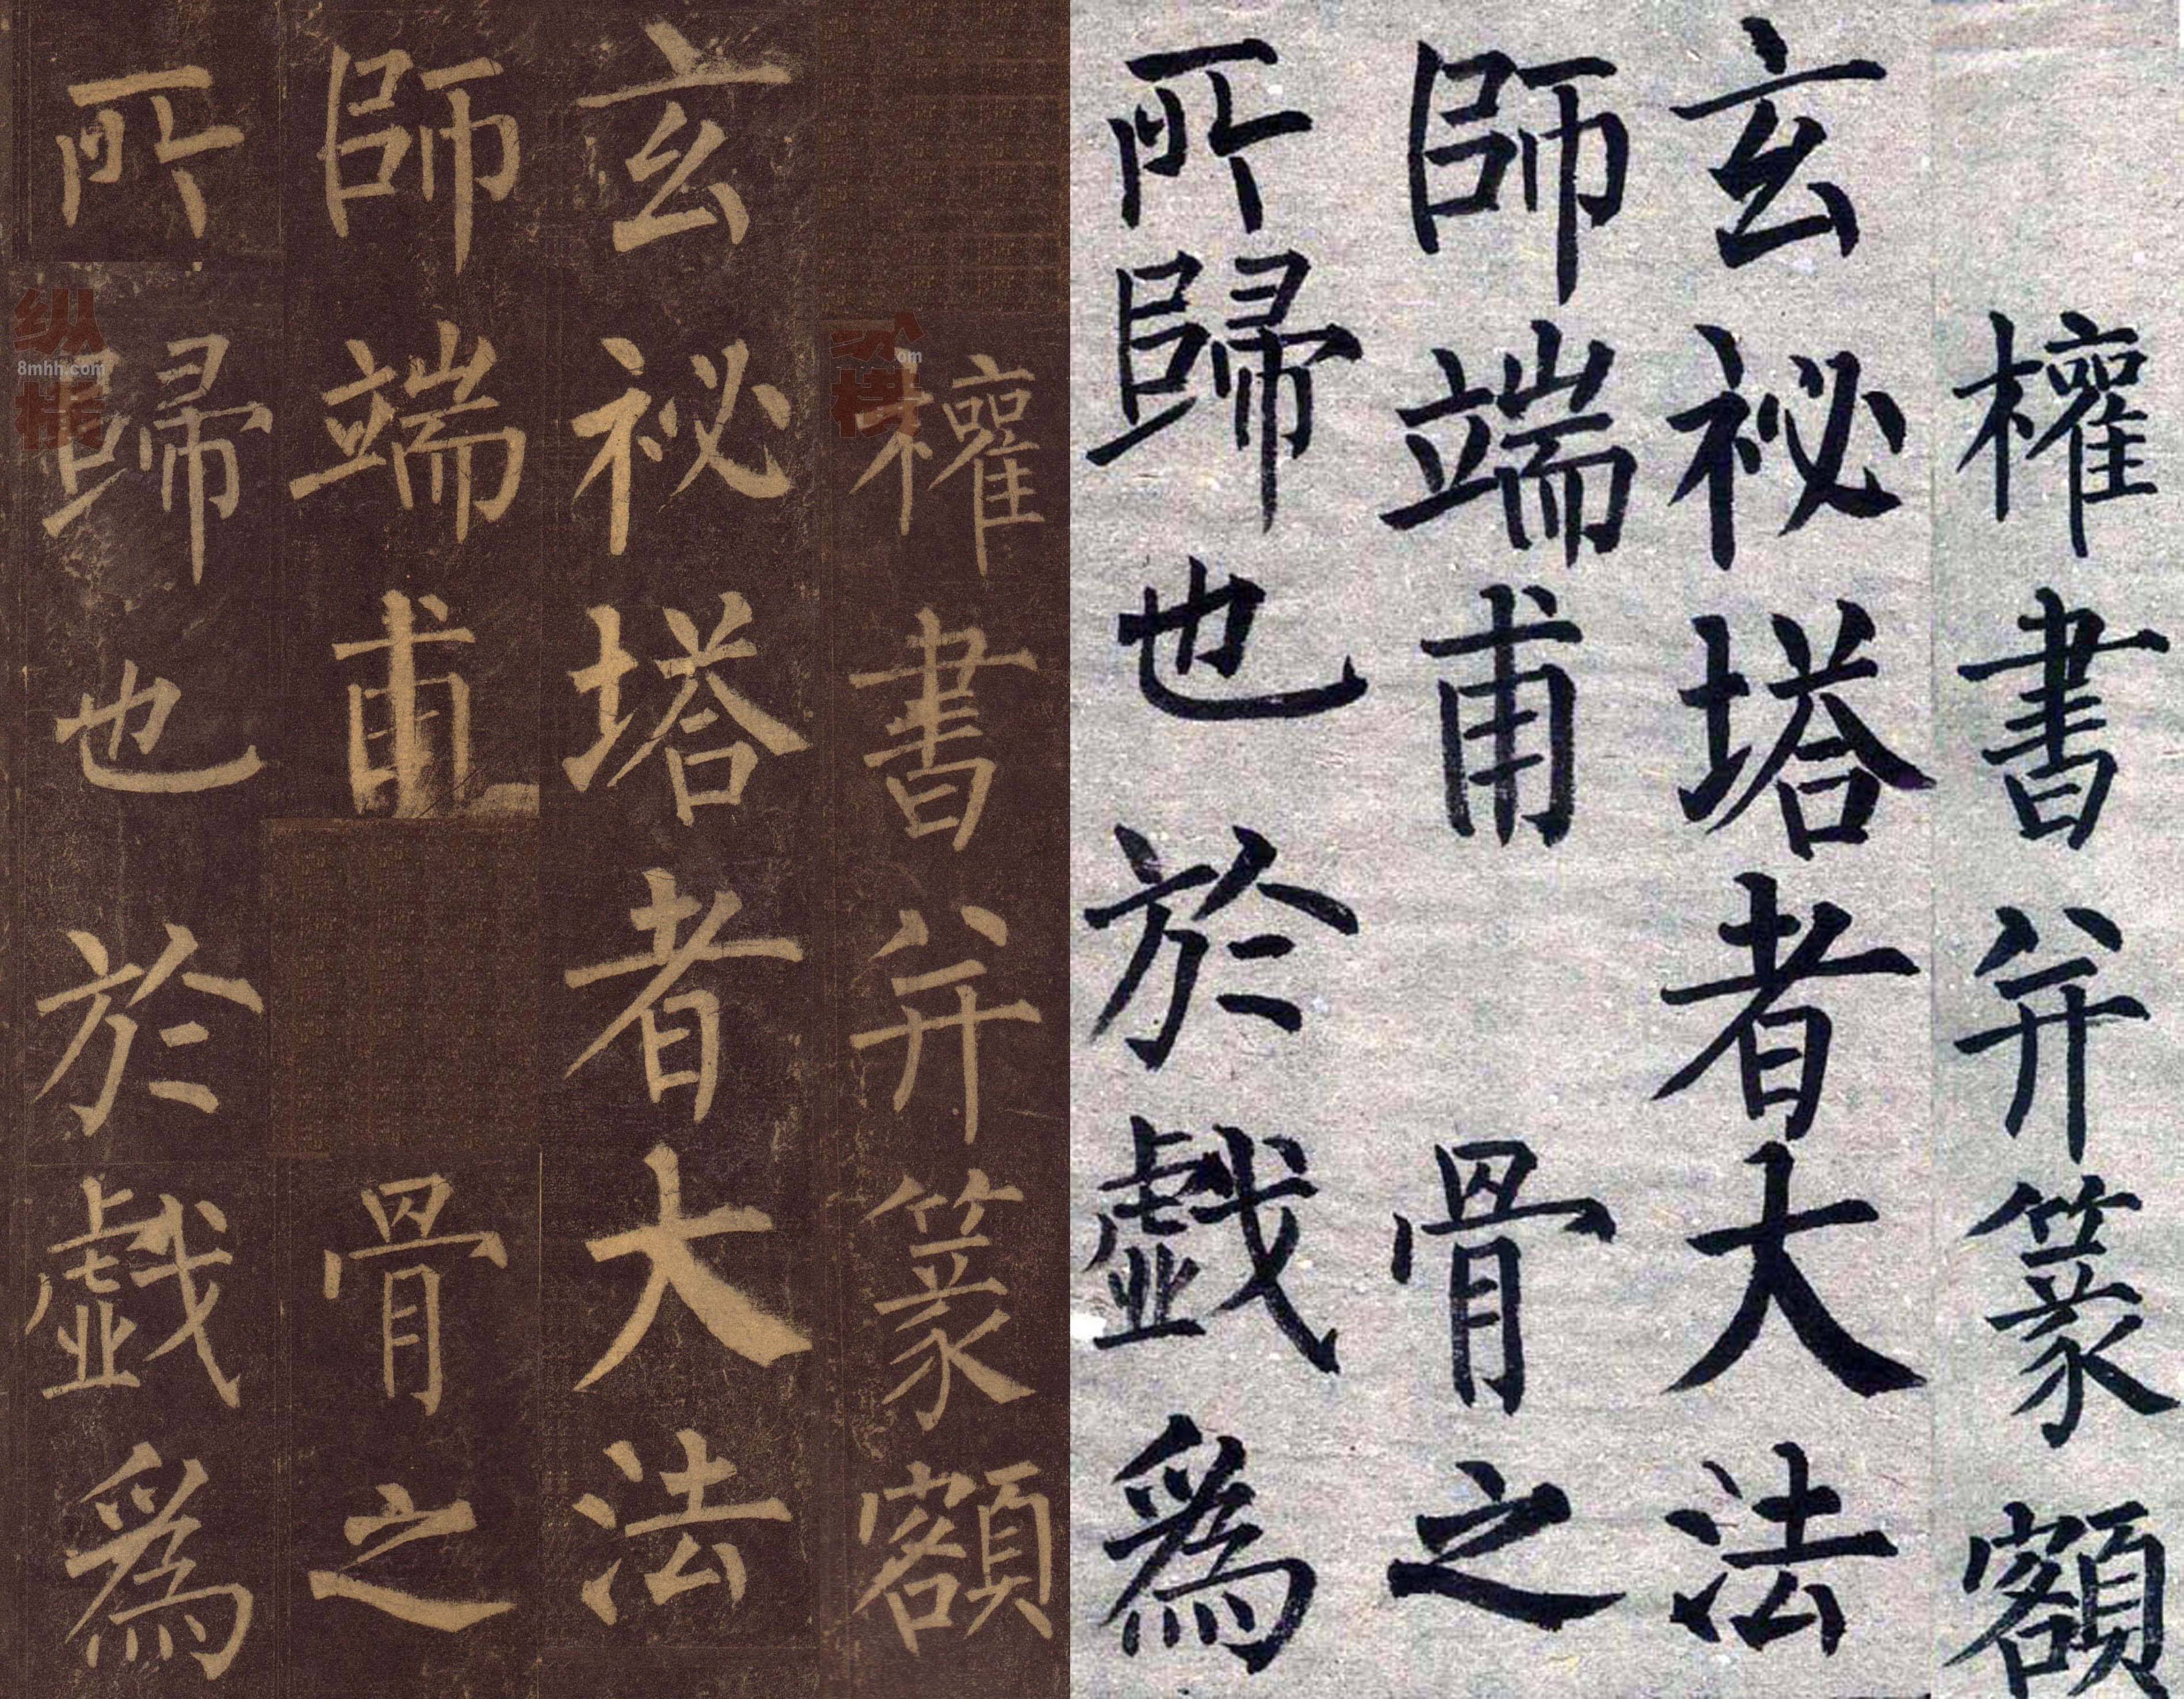 權書并篆額
玄祕塔者大法
師端甫骨之
所歸也於戲為
權書并篆額
玄祕塔者大法
師端甫骨之
所歸也於戲為
8mhh.com